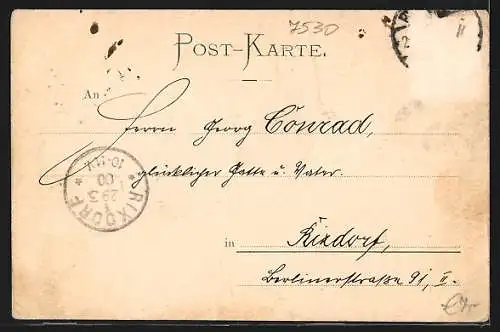 7530
POST-KARTE.
An
Herrn Georg Conrad,
glücklicher Gatte u. Vater.
RIXDORF
1
29 3
00
10-11V.
in Rixdorf,
Berlinerstraße 91, II.